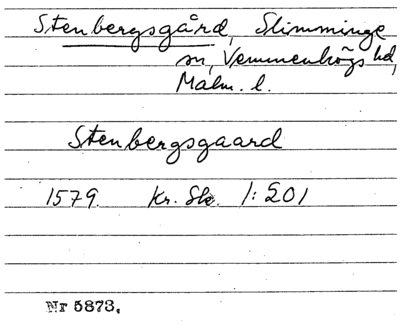 Stenbergsgård, Slimminge
sn, Vemmenhögs hd,
Malm. l.
Stenbergsgaard
1579. Kr. Sk. 1:201
Nr 5873.